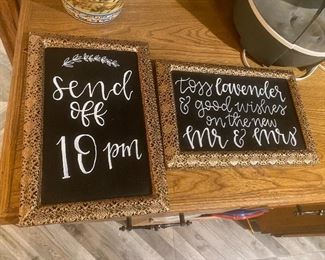 send
off
10 pm
toss lavender
& good wishes
on the new
Mr & Mrs